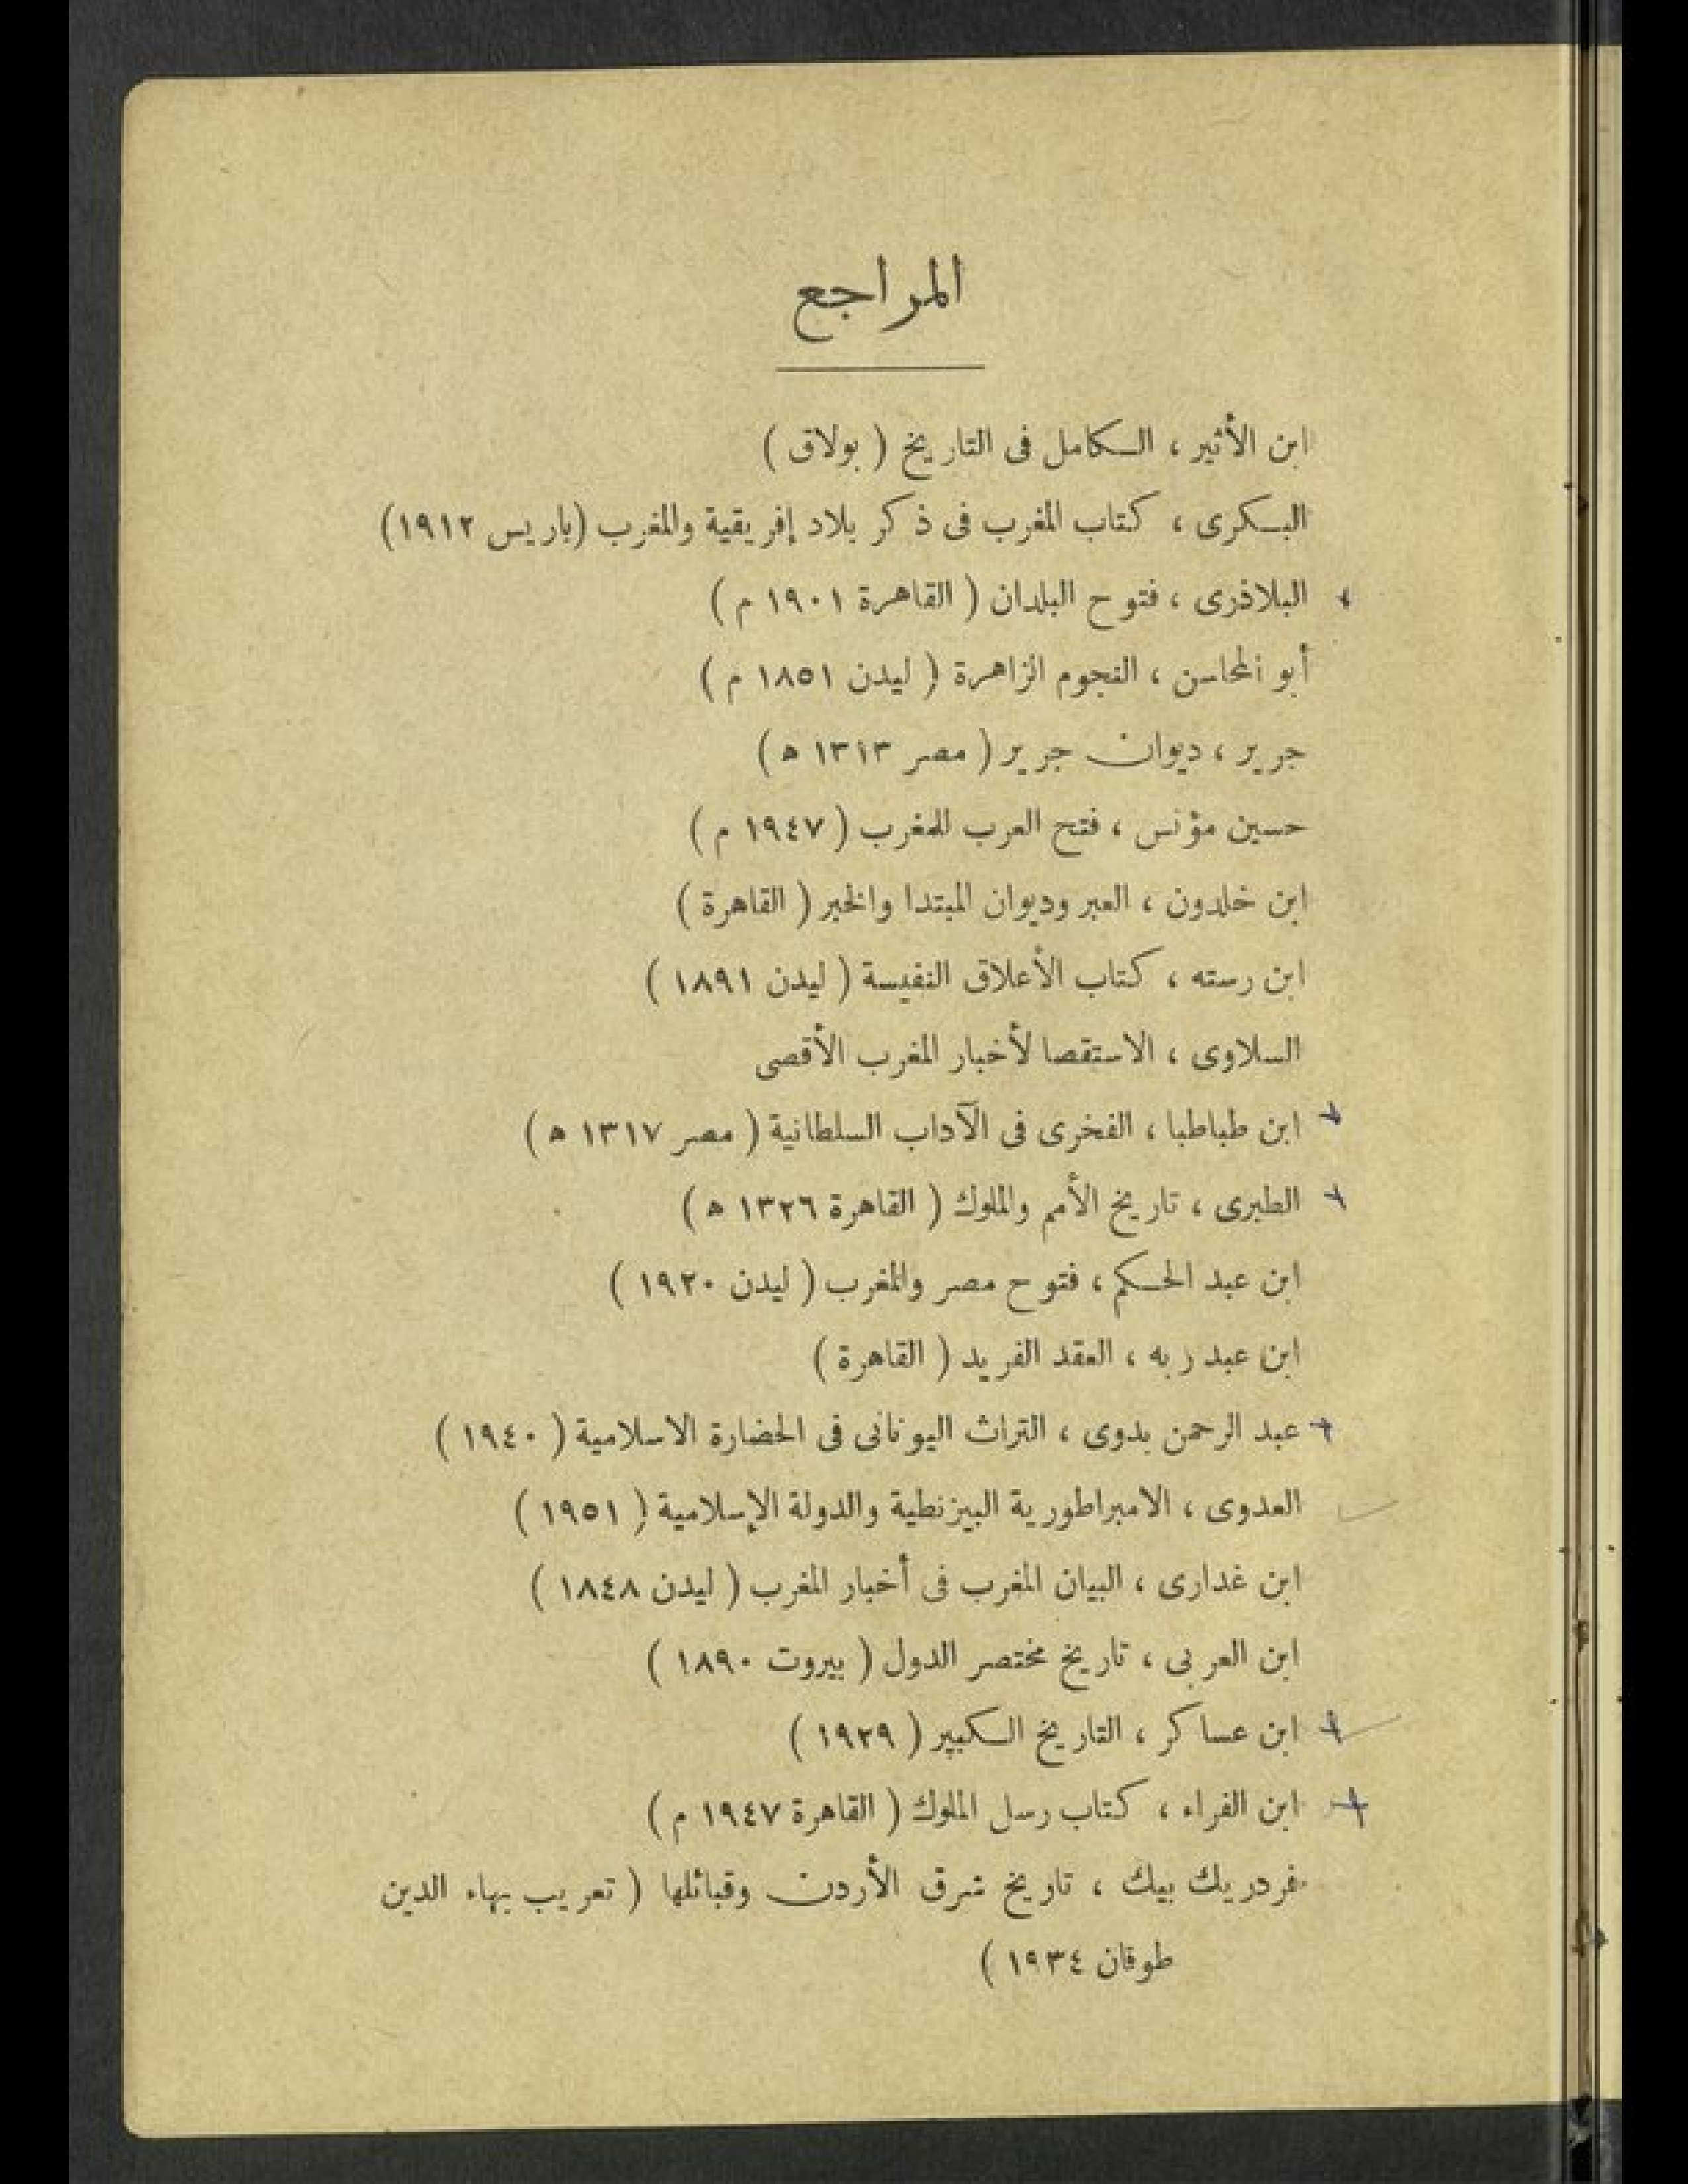 المراجع
ابن الأثير ، الكامل فى التاريخ ( بولاق )
البكرى ، كتاب المغرب فى ذكر بلاد إفريقية والمغرب (باريس ١٩١٢)
البلاذرى ، فتوح البلدان ( القاهرة ١٩٠١ م )
أبو المحاسن ، النجوم الزاهرة ( ليدن ١٨٥١ م )
جرير ، ديوان جرير ( مصر ١٣١٣ ه )
حسين مؤنس ، فتح العرب للمغرب ( ١٩٤٧ م )
ابن خلدون ، العبر وديوان المبتدا والخبر ( القاهرة )
ابن رسته ، كتاب الأعلاق النفيسة ( ليدن ١٨٩١ )
السلاوى ، الاستقصا لأخبار المغرب الأقصى
ابن طباطبا ، الفخرى فى الآداب السلطانية ( مصر ١٣١٧ ه )
الطبرى ، تاريخ الأمم والملوك ( القاهرة ١٣٢٦ ه )
ابن عبد الحكم ، فتوح مصر والمغرب ( ليدن ١٩٢٠ )
ابن عبد ربه ، العقد الفريد ( القاهرة )
عبد الرحمن بدوى ، التراث اليونانى فى الحضارة الاسلامية ( ١٩٤٠ )
العدوى ، الامبراطورية البيزنطية والدولة الإسلامية ( ١٩٥١ )
ابن غدارى ، البيان المغرب فى أخبار المغرب ( ليدن ١٨٤٨ )
ابن العربى ، تاريخ مختصر الدول ( بيروت ١٨٩٠ )
ابن عساكر ، التاريخ الكبير ( ١٩٢٩ )
ابن الفراء ، كتاب رسل الملوك ( القاهرة ١٩٤٧ م )
فردريك بيك ، تاريخ شرق الأردن وقبائلها ( تعريب بهاء الدين
طوقان ١٩٣٤ )